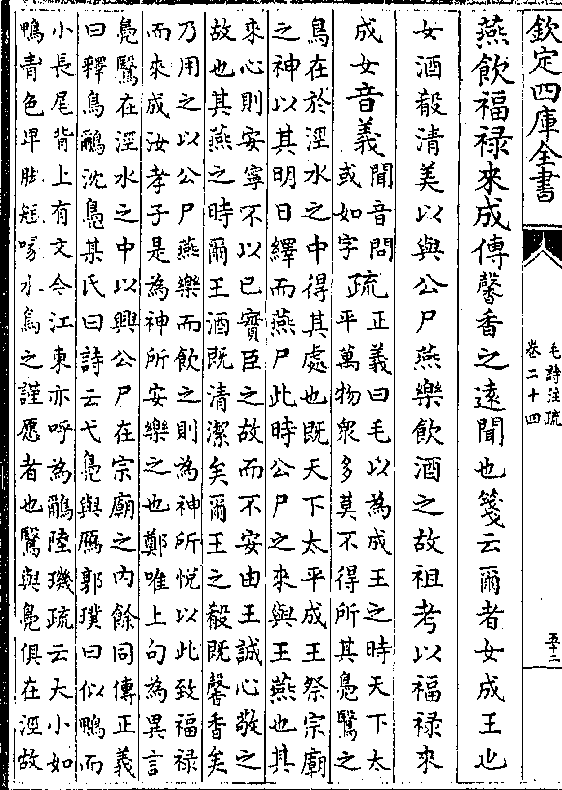 欽定四庫全書
毛詩注疏
卷二十四
五十二
燕飲福祿來成傳馨香之遠聞也箋云爾者女成王也
女酒殽清美以與公尸燕樂飲酒之故祖考以福祿來
成女音義聞音問或如字疏正義曰毛以為成王之時天下太
平萬物衆多莫不得所其鳧鷖之
鳥在於涇水之中得其處也既天下太平成王祭宗廟
之神以其明日繹而燕尸此時公尸之來與王燕也其
來心則安寧不以已實臣之故而不安由王誠心敬之
故也其燕之時爾王酒既清潔矣爾王之殽既馨香矣
乃用之以公尸燕樂而飲之則為神所悦以此致福祿
而來成汝孝子是為神所安樂之也鄭唯上句為異言
鳧鷖在涇水之中以興公尸在宗廟之内餘同傳正義
曰釋鳥鸍沈鳧某氏曰詩云弋鳧與鴈郭璞曰似鴨而
小長尾背上有文今江東亦呼為鸍陸璣疏云大小如
鴨青色卑脚短喙水鳥之謹愿者也鷖與鳧俱在涇故